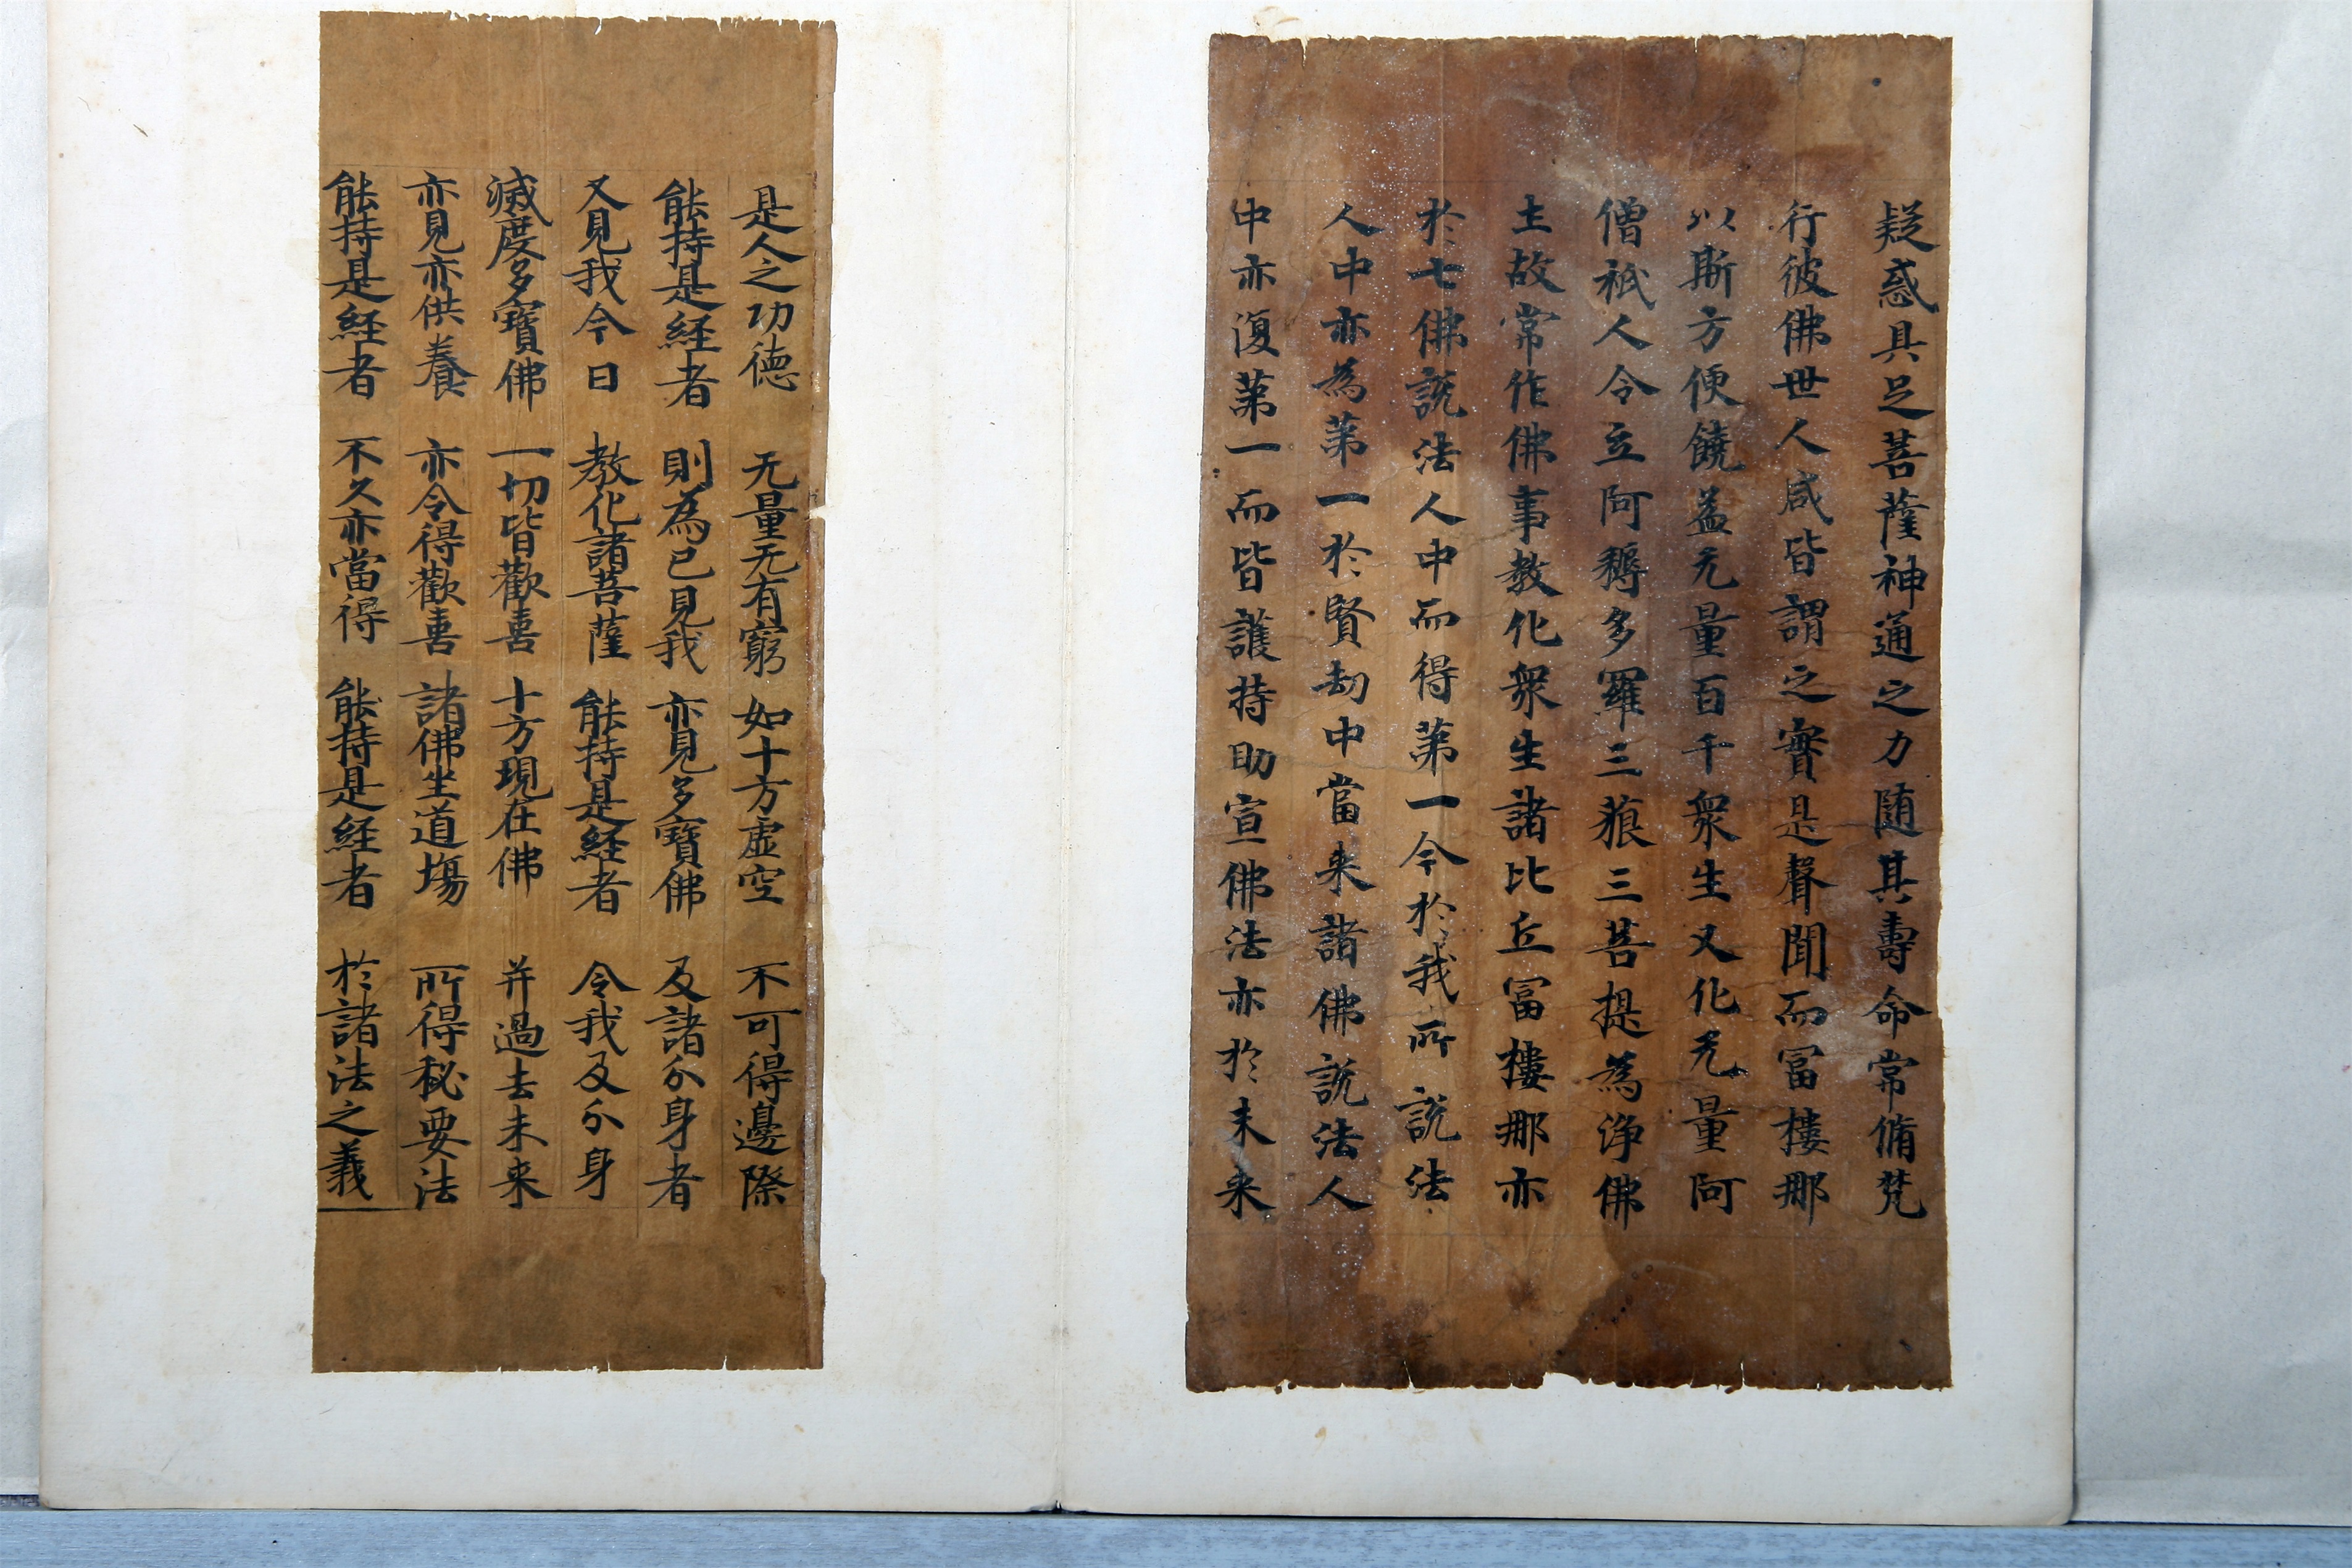 疑惑具足菩薩神通之力随其壽命常脩梵
行彼佛世人咸皆謂之實是聲聞而冨樓那
以斯方便饒益无量百千衆生又化无量阿
僧祇人令立阿耨多羅三藐三菩提為淨佛
土故常作佛事教化衆生諸比丘冨樓那亦
於七佛說法人中而得苐一今於我所說法
人中亦為苐一於賢劫中當来諸佛說法人
中亦復苐一而皆護持助宣佛法亦於未来
是人之功德　无量无有窮　如十方虚空　不可得邊際
能持是経者　則為已見我　亦見多寶佛　及諸分身者
又見我今日　教化諸菩薩　能持是経者　令我及分身
滅度多寶佛　一切皆歡喜　十方現在佛　并過去未来
亦見亦供養　亦令得歡喜　諸佛坐道塲　所得秘要法
能持是経者　不久亦當得　能持是経者　於諸法之義